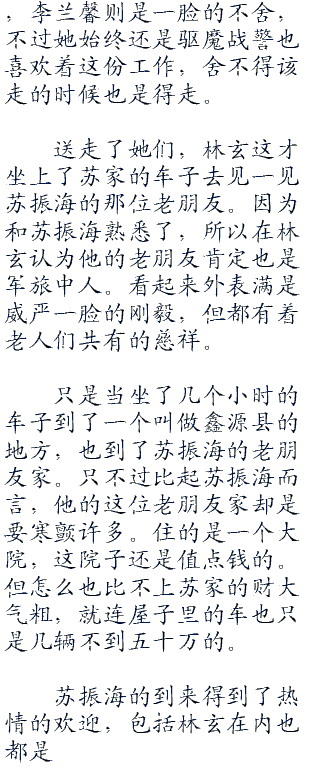 ，李兰馨则是一脸的不舍，
不过她始终还是驱魔战警也
喜欢着这份工作，舍不得该
走的时候也是得走。
送走了她们，林玄这才
坐上了苏家的车子去见一见
苏振海的那位老朋友。因为
和苏振海熟悉了，所以在林
玄认为他的老朋友肯定也是
军旅中人。看起来外表满是
威严一脸的刚毅，但都有着
老人们共有的慈祥。
只是当坐了几个小时的
车子到了一个叫做鑫源县的
地方，也到了苏振海的老朋
友家。只不过比起苏振海而
言，他的这位老朋友家却是
要寒颤许多。住的是一个大
院，这院子还是值点钱的。
但怎么也比不上苏家的财大
气粗，就连屋子里的车也只
是几辆不到五十万的。
苏振海的到来得到了热
情的欢迎，包括林玄在内也
都是